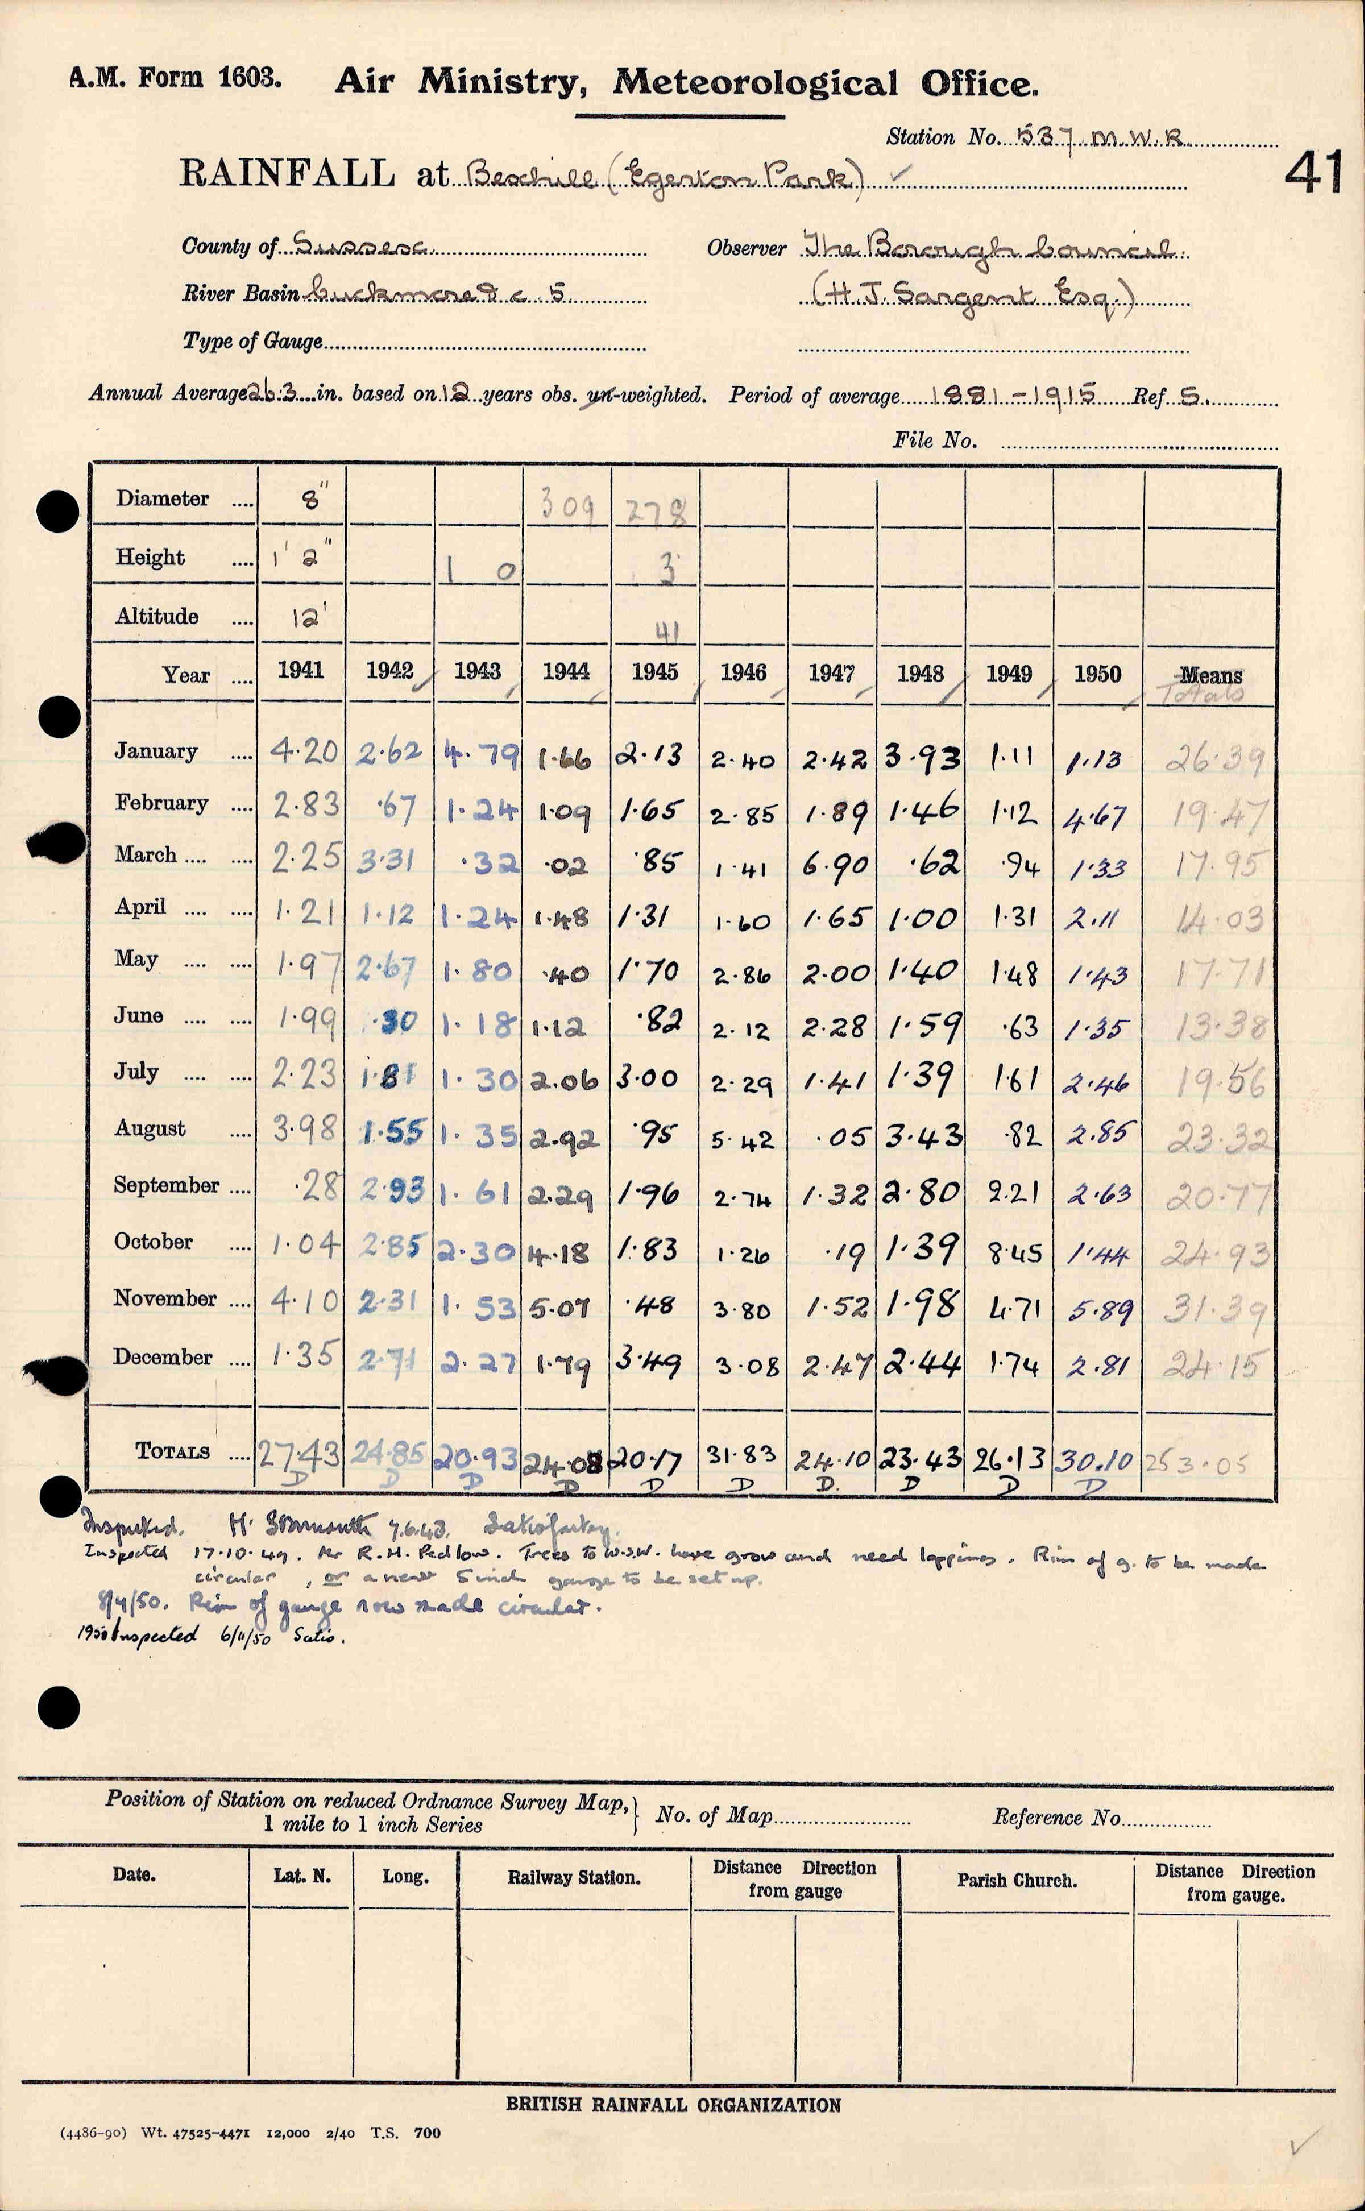 A.M. Form 1603. Air Ministry, Meteorological Office.
Station No. 537 M.W.R
41
RAINFALL at Bexhill (Egerton Park) ✓
County of Sussex Observer The Borough Council.
River Basin Cuckmere & c. 5 (H.J. Sargent Esq.)
Type of Gauge
Annual Average 26.3 in. based on 12 years obs. un-weighted. Period of average 1881-1915 Ref S.
File No.
Diameter .... 8" 309 278
Height .... 1' 2" 1 0 3
Altitude .... 12' 41
Year .... 1941 1942 1943 1944 1945 1946 1947 1948 1949 1950 Means
Totals
January .... 4.20 2.62 4.79 1.66 2.13 2.40 2.42 3.93 1.11 1.13 26.39
February .... 2.83 .67 1.24 1.09 1.65 2.85 1.89 1.46 1.12 4.67 19.47
March .... .... 2.25 3.31 .32 .02 .85 1.41 6.90 .62 .94 1.33 17.95
April .... .... 1.21 1.12 1.24 1.48 1.31 1.60 1.65 1.00 1.31 2.11 14.03
May .... .... 1.97 2.67 1.80 .40 1.70 2.86 2.00 1.40 1.48 1.43 17.71
June .... .... 1.99 .30 1.18 1.12 .82 2.12 2.28 1.59 .63 1.35 13.38
July .... .... 2.23 1.81 1.30 2.06 3.00 2.29 1.41 1.39 1.61 2.46 19.56
August .... 3.98 1.55 1.35 2.92 .95 5.42 .05 3.43 .82 2.85 23.32
September .... .28 2.93 1.61 2.29 1.96 2.74 1.32 2.80 2.21 2.63 20.77
October .... 1.04 2.85 2.30 4.18 1.83 1.26 .19 1.39 8.45 1.44 24.93
November .... 4.10 2.31 1.53 5.07 .48 3.80 1.52 1.98 4.71 5.89 31.39
December .... 1.35 2.71 2.27 1.79 3.49 3.08 2.47 2.44 1.74 2.81 24.15
TOTALS .... 27.43 24.85 20.93 24.08 20.17 31.83 24.10 23.43 26.13 30.10 253.05
D D D D D D D. D D D
Inspected. 7.6.43. Satisfactory.
Inspected 17.10.49. Mr R.H. Pedlow. Trees to W.S.W. have grow and need lopping. Rim of g. to be made
circular, or a new 5 inch gauge to be set up.
8/4/50. Rim of gauge now made circular.
1950 Inspected 6/11/50 Satis.
Position of Station on reduced Ordnance Survey Map,} No. of Map Reference No.
1 mile to 1 inch Series
Date. Lat. N. Long. Railway Station. Distance Direction from gauge Parish Church. Distance Direction from gauge.
BRITISH RAINFALL ORGANIZATION
(4486-90) Wt. 47525-4471 12,000 2/40 T.S. 700
✓